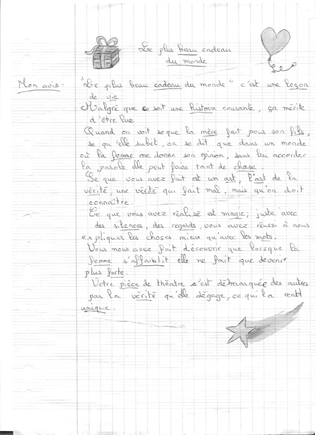 Le plus beau cadeau
du monde
Mon avis : "Le plus beau cadeau du monde" c'est une leçon
de vie
Malgré que ce soit une histoire courante, ça mérite
d'être lue.
Quand on voit ce que la mère fait pour son fils,
ce qu'elle subit, on se dit que dans un monde
où la femme ne donne son opinion, sans lui accorder
la parole elle peut faire tant de chose.
Ce que vous avez fait est un art, l'art de la
vérité, une vérité qui fait mal, mais qu'on doit
connaître.
Ce que vous avez réalisé est magic, juste avec
des silences, des regards, vous avez réussi à nous
expliquer les choses mieux qu'avec les mots.
Vous nous avez fait découvrir que lorsque la
femme s'affaiblit elle ne fait que devenir
plus forte.
Votre pièce de théâtre s'est démarquée des autres
par la vérité qu'elle dégage, ce qui la rend
unique.